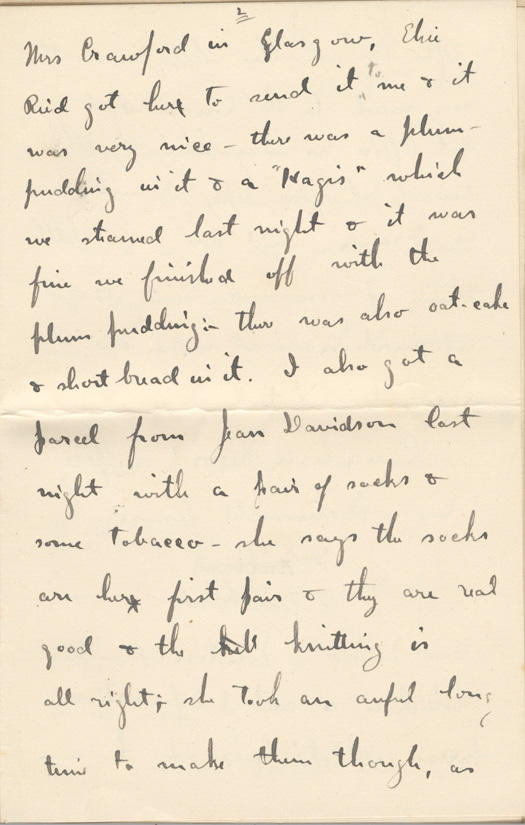 2
Mrs Crawford in Glasgow, Elsie
Reid got her to send it to me & it
was very nice - there was a plum-
pudding in it & a "Hagis" which
we steamed last night & it was
fine we finished off with the
plum pudding:- there was also oat-cake
& short bread in it. I also got a
parcel from Jean Davidson last
night with a pair of socks &
some tobacco - she says the socks
are her first pair & they are real
good & the knitting is
all right; she took an awful long
time to make them though, as